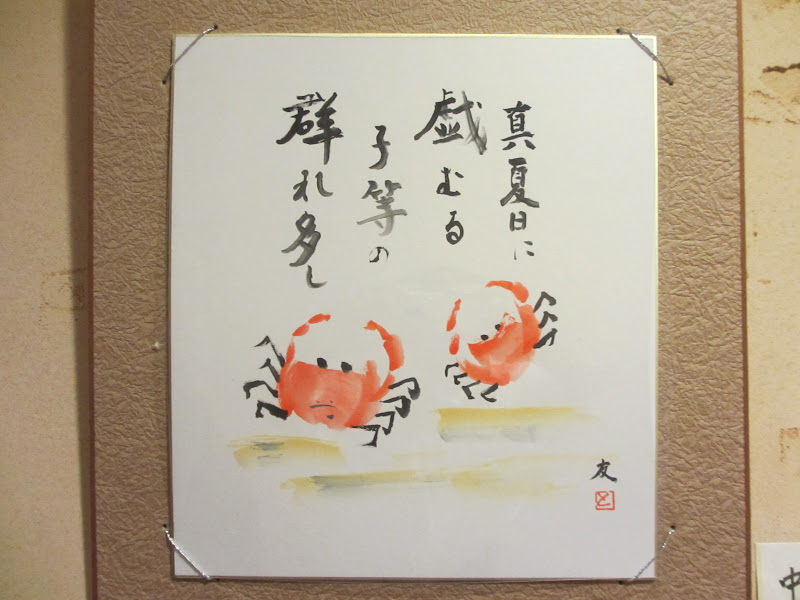 真夏日に
戯むる
子等の
群れ多し
友
と
中